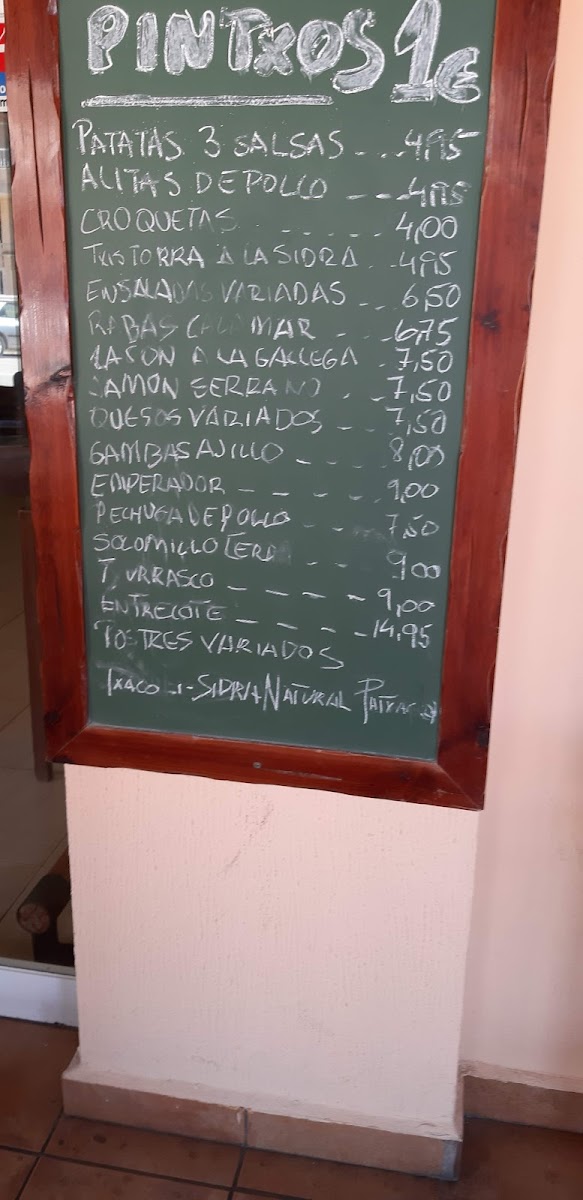 PINTXOS 1€
PATATAS 3 SALSAS - . . . 4,95
ALITAS DE POLLO - - - - 4,95
CROQUETAS . . . . . . . 4,00
A LA SIDRA . . 4,95
ENSALADAS VARIADAS - - 6,50
RABAS CALAMAR - - - 6,75
LACON A LA GALLEGA . 7,50
JAMON SERRANO . - 7,50
QUESOS VARIADOS - - 7,50
GAMBAS AJILLO - - - - 8,00
EMPERADOR - - - - - 9,00
PECHUGA DE POLLO - - - 7,50
SOLOMILLO - - 9,00
- - - - - 9,00
ENTRECOTE - - - - - 14,95
POSTRES VARIADOS
SIDRA NATURAL